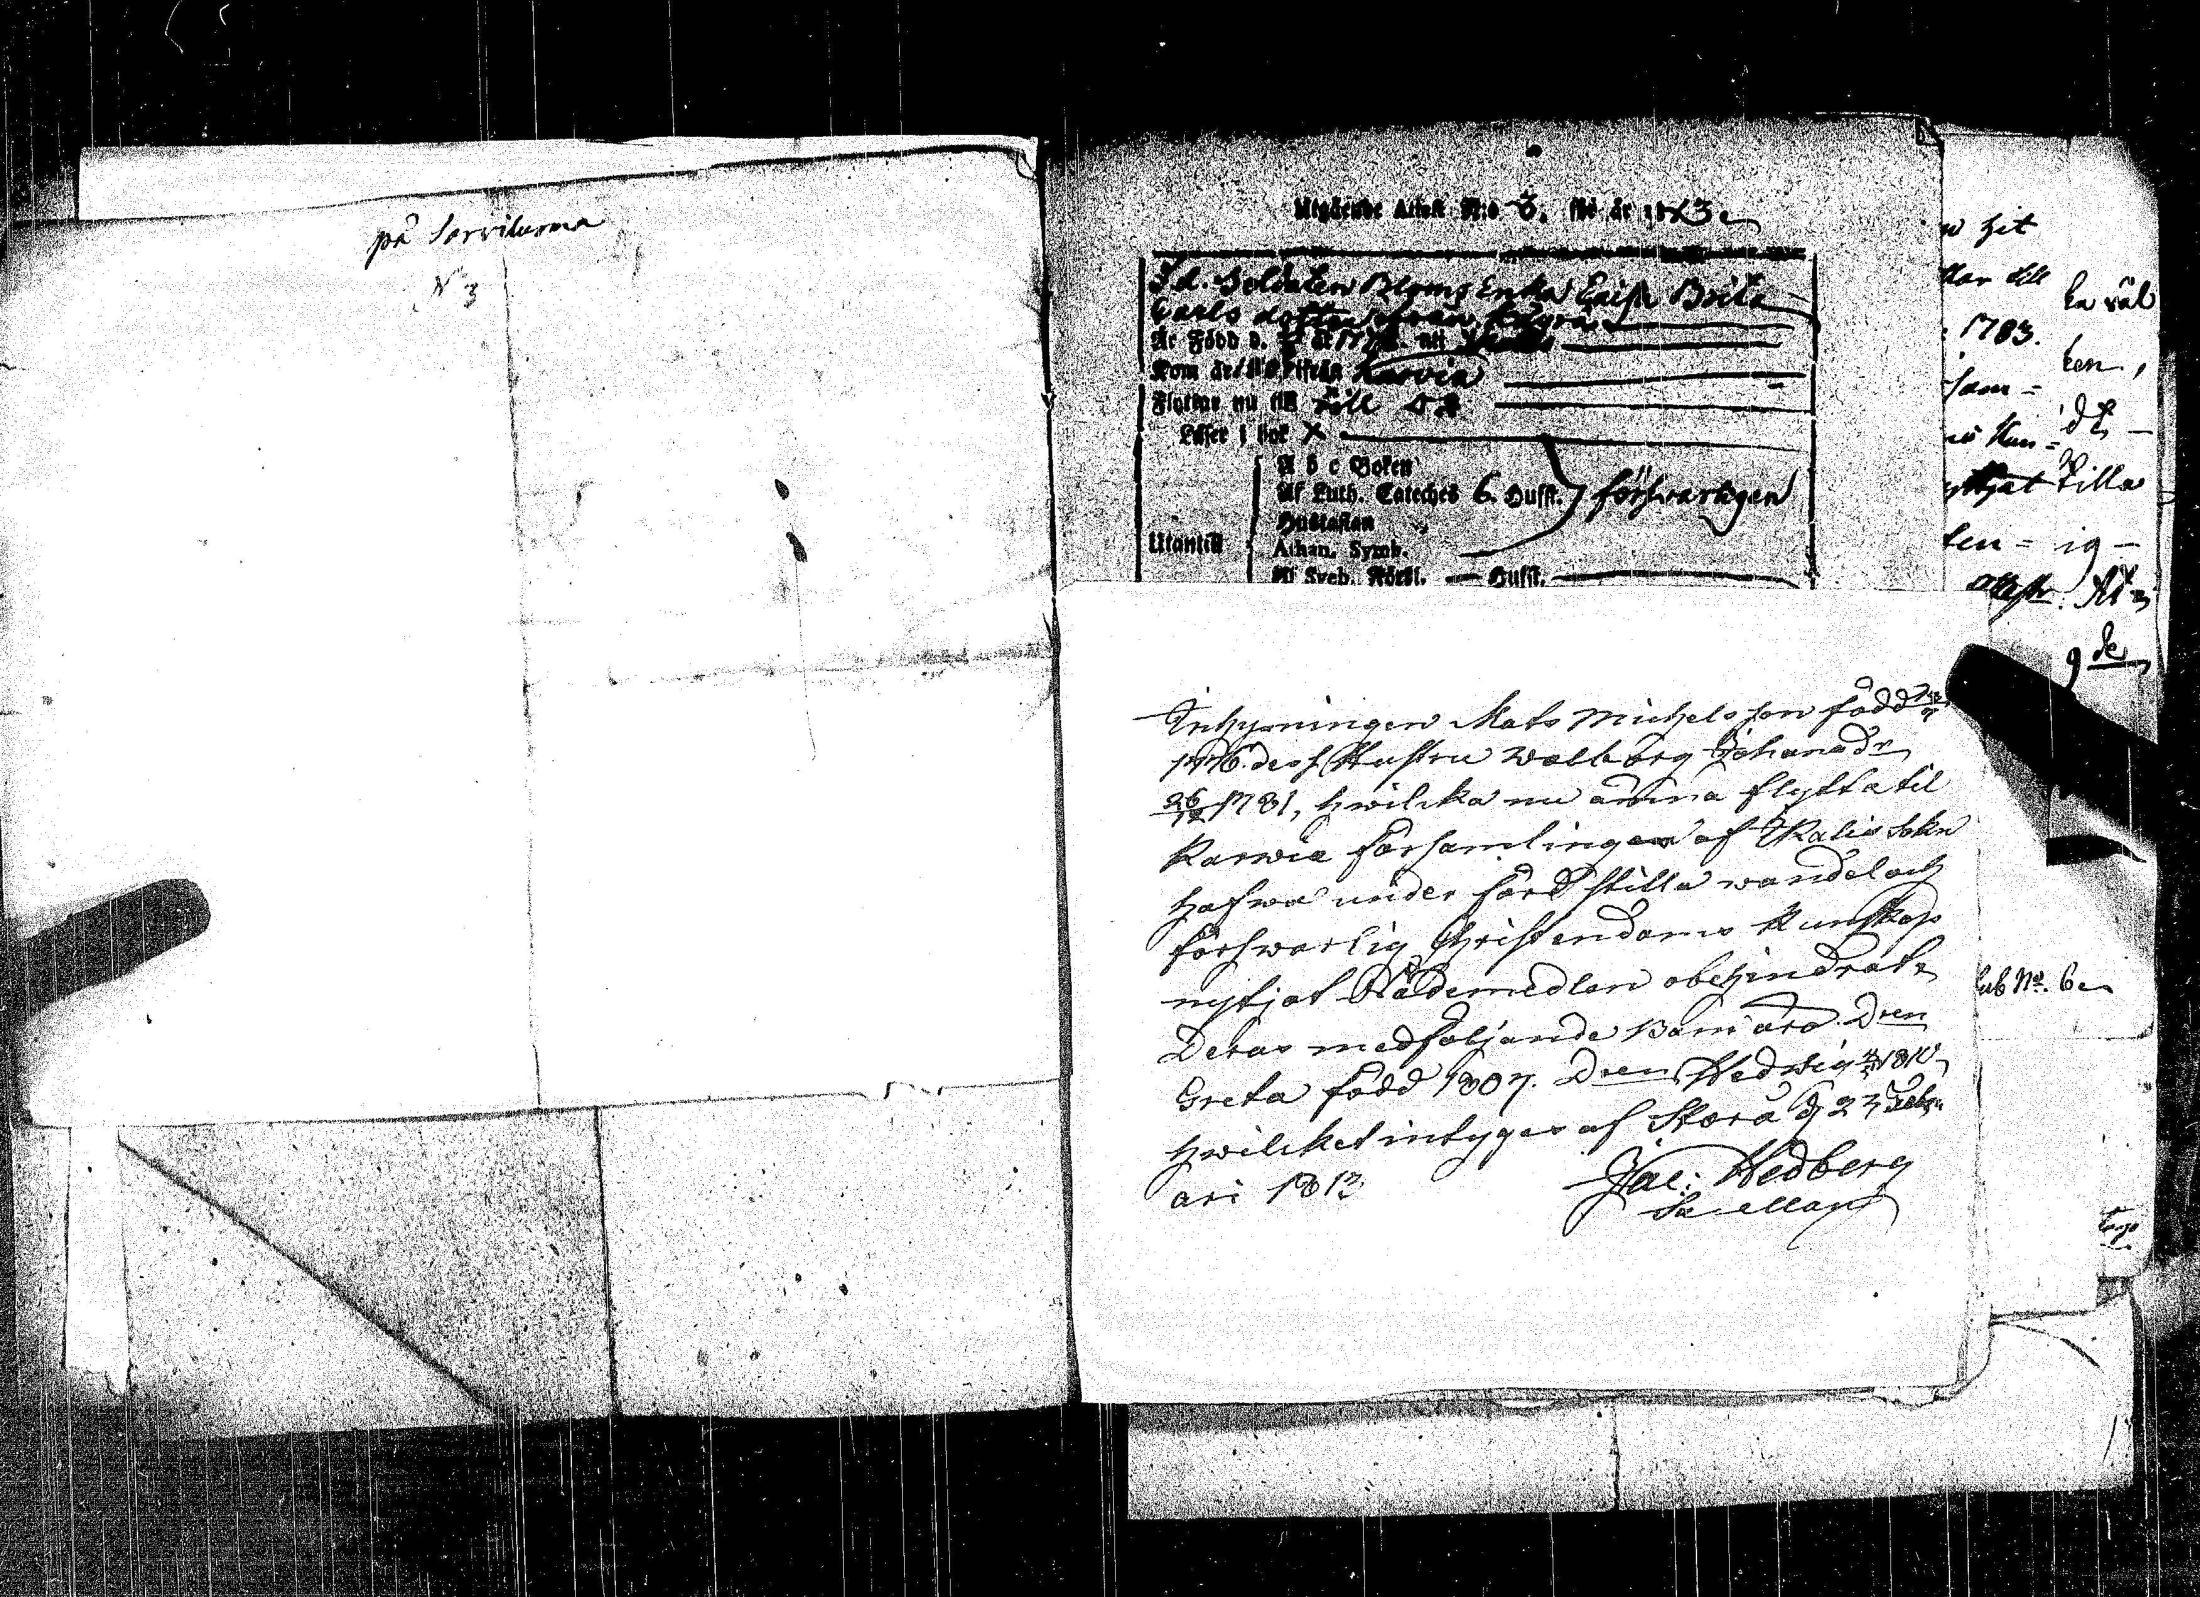 på Sarviluoma
N 3
Utgående Attest N:o 3. för år 1813
F.d. Soldaten Bloms Enka Caisa Brita
Carls dotter från
Är Född d. år
Kom år ifrån Karvia
Flyttar nu till
Läser i bok X
A b c Boken
Af Luth. Cateches 6. Hufst. försvarligen
Hustaflan
Utantill
Athan. Symb.
Af Sveb. Förkl. — Hufst.
Inhysningen Mats Michelsson född
1776. dess Hustru Walborg Johansdr
26/12 1781, hwilcka nu ämna flytta til
Karwia församlingen af Ikalis Sokn
hafwa under förd stilla wandel och
förswarlig Christendoms Kunskap
nytjat Nådemedlen obehindrat
Deras medföljande Barn äro Dren
Greta född 1807. Dren Hedwig 1810
hwilcket intygas af Storå d 23 Febru
ari 1813
Jac: Hedberg
Sacellan
hit
till
1783.
sam=
Kun=
ten=
attest
ken,
tilla
ig—
de
sub No. 6